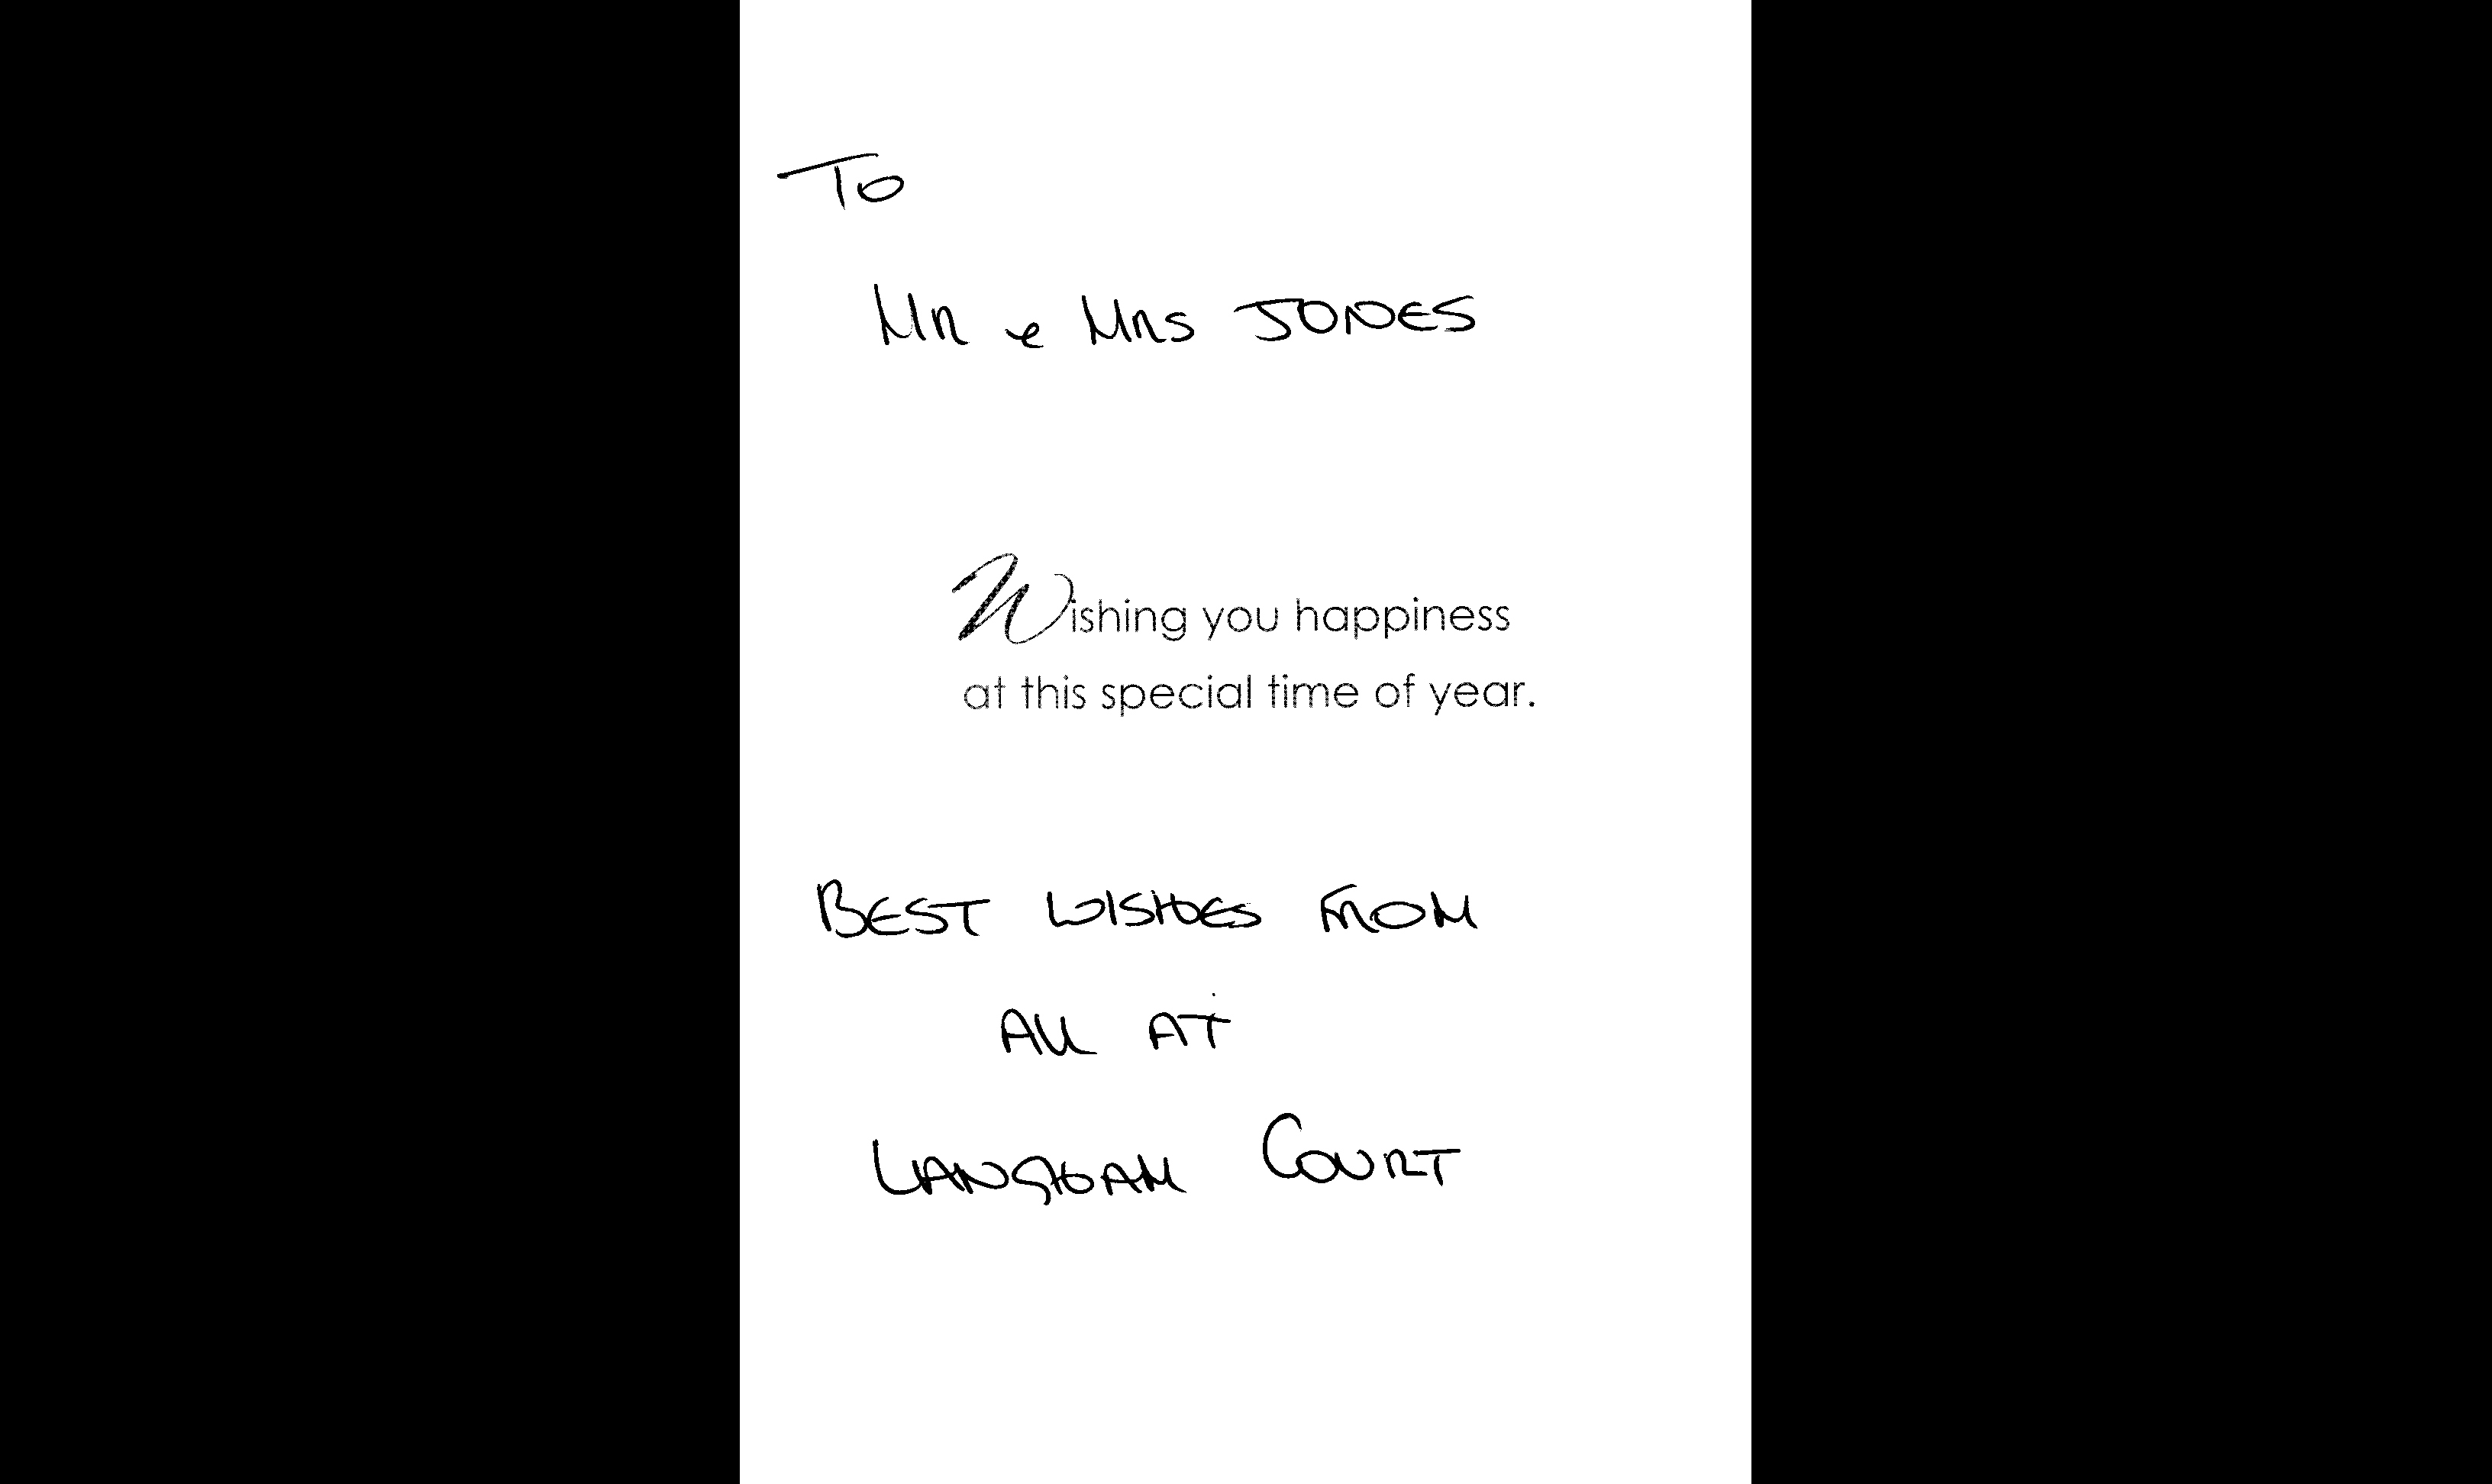 To
Mr & Mrs JONES
Wishing you happiness
at this special time of year.
BEST WISHES FROM
All AT
LANGHAM COURT